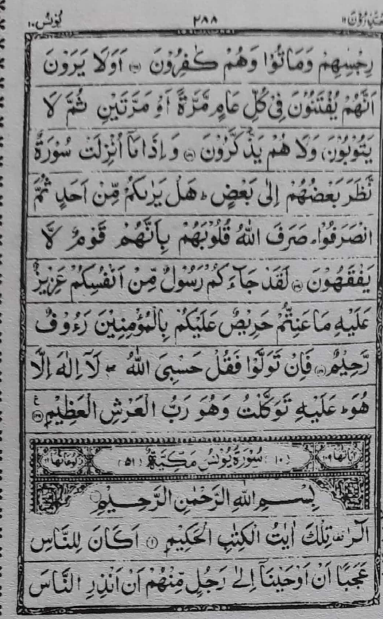 يونس ١٠ ٢٨٨ يعتذرون ١١
رِجْسِهِمْ وَمَاتُوْا وَهُمْ كٰفِرُوْنَ ۝ اَوَلَا يَرَوْنَ
اَنَّهُمْ يُفْتَنُوْنَ فِيْ كُلِّ عَامٍ مَّرَّةً اَوْ مَرَّتَيْنِ ثُمَّ لَا
يَتُوْبُوْنَ وَلَا هُمْ يَذَّكَّرُوْنَ ۝ وَاِذَا مَآ اُنْزِلَتْ سُوْرَةٌ
نَّظَرَ بَعْضُهُمْ اِلٰى بَعْضٍ ؕ هَلْ يَرٰىكُمْ مِّنْ اَحَدٍ ثُمَّ
انْصَرَفُوْا ؕ صَرَفَ اللّٰهُ قُلُوْبَهُمْ بِاَنَّهُمْ قَوْمٌ لَّا
يَفْقَهُوْنَ ۝ لَقَدْ جَآءَكُمْ رَسُوْلٌ مِّنْ اَنْفُسِكُمْ عَزِيْزٌ
عَلَيْهِ مَا عَنِتُّمْ حَرِيْصٌ عَلَيْكُمْ بِالْمُؤْمِنِيْنَ رَءُوْفٌ
رَّحِيْمٌ ۝ فَاِنْ تَوَلَّوْا فَقُلْ حَسْبِيَ اللّٰهُ ۖ لَآ اِلٰهَ اِلَّا
هُوَ ؕ عَلَيْهِ تَوَكَّلْتُ وَهُوَ رَبُّ الْعَرْشِ الْعَظِيْمِ ۝
(١٠) سُوْرَةُ يُوْنُسَ مَكِّيَّةٌ (٥١)
بِسْمِ اللّٰهِ الرَّحْمٰنِ الرَّحِيْمِ
الٓرٰ ۟ تِلْكَ اٰيٰتُ الْكِتٰبِ الْحَكِيْمِ ۝ اَكَانَ لِلنَّاسِ
عَجَبًا اَنْ اَوْحَيْنَآ اِلٰى رَجُلٍ مِّنْهُمْ اَنْ اَنْذِرِ النَّاسَ